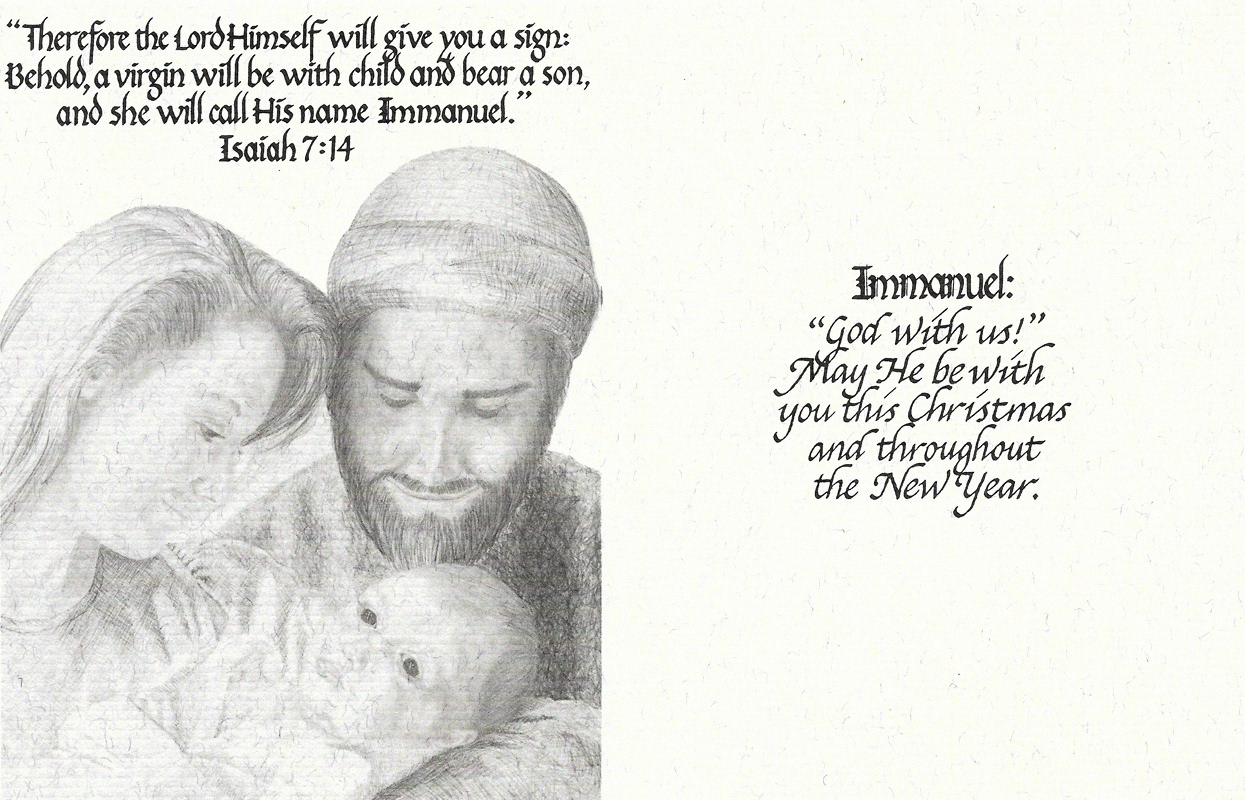 “Therefore the Lord Himself will give you a sign:
Behold, a virgin will be with child and bear a son,
and she will call His name Immanuel.”
Isaiah 7:14
Immanuel:
“God with us!”
May He be with
you this Christmas
and throughout
the New Year.